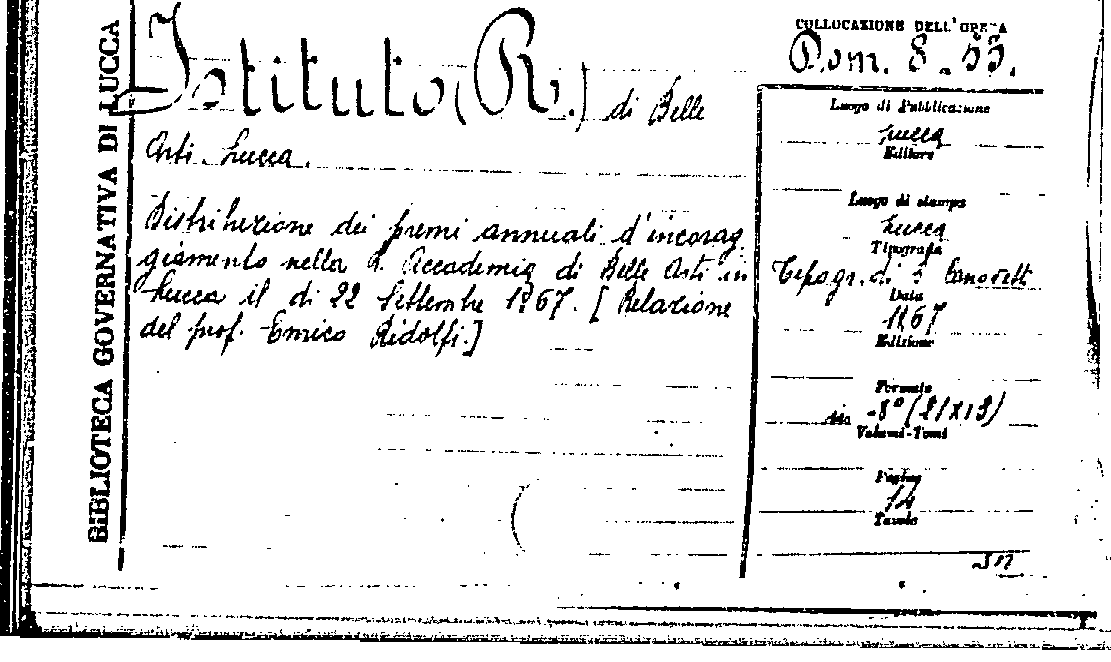 BIBLIOTECA GOVERNATIVA DI LUCCA
Istituto (R.) di Belle
Arti. Lucca.
Distribuzione dei premi annuali d'incorag
giamento nella R. Accademia di Belle Arti in
Lucca il dì 22 Settembre 1867. [Relazione
del prof. Enrico Ridolfi.]
COLLOCAZIONE DELL'OPERA
Dom. 8. 53.
Luogo di Pubblicazione
Lucca
Editore
Luogo di stampa
Lucca
Tipografia
Tipogr. di
Data
1867
Edizione
Formato
in -8° (21x13)
Volumi-Tomi
Pagine
14
Tavole